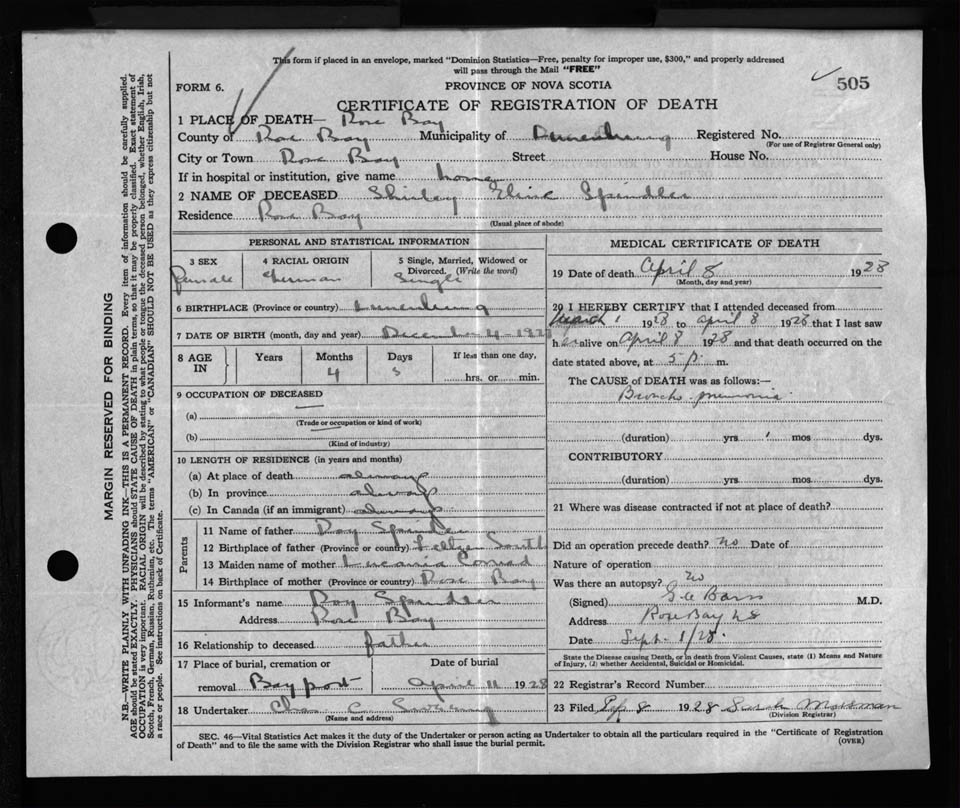 This form if placed in an envelope, marked "Dominion Statistics—Free, penalty for improper use, $300," and properly addressed
will pass through the Mail "FREE"
FORM 6. PROVINCE OF NOVA SCOTIA 505
CERTIFICATE OF REGISTRATION OF DEATH
1 PLACE OF DEATH— Rose Bay
County of Rose Bay Municipality of Lunenburg Registered No.
(For use of Registrar General only)
City or Town Rose Bay Street House No.
If in hospital or institution, give name home
2 NAME OF DECEASED Shirley Spindler
Residence Rose Bay
(Usual place of abode)
PERSONAL AND STATISTICAL INFORMATION
3 SEX 4 RACIAL ORIGIN 5 Single, Married, Widowed or
Divorced. (Write the word)
Female German Single
6 BIRTHPLACE (Province or country) Lunenburg
7 DATE OF BIRTH (month, day and year) December 4 - 192
8 AGE IN Years Months Days If less than one day,
4 hrs. or min.
9 OCCUPATION OF DECEASED
(a)
(Trade or occupation or kind of work)
(b)
(Kind of industry)
10 LENGTH OF RESIDENCE (in years and months)
(a) At place of death always
(b) In province always
(c) In Canada (if an immigrant) always
Parents
11 Name of father Roy Spindler
12 Birthplace of father (Province or country) Feltzen South
13 Maiden name of mother Conrad
14 Birthplace of mother (Province or country) Rose Bay
15 Informant's name Roy Spindler
Address Rose Bay
16 Relationship to deceased father
17 Place of burial, cremation or Date of burial
removal Bayport April 11 1928
18 Undertaker Chas C
(Name and address)
MEDICAL CERTIFICATE OF DEATH
19 Date of death April 8 1928
(Month, day and year)
20 I HEREBY CERTIFY that I attended deceased from
March 1 1928 to April 8 1928 that I last saw
her alive on April 8 1928 and that death occurred on the
date stated above, at 5 P. m.
The CAUSE of DEATH was as follows:—
Broncho pneumonia
(duration) yrs. mos dys.
CONTRIBUTORY
(duration) yrs. mos. dys.
21 Where was disease contracted if not at place of death?
Did an operation precede death? no Date of
Nature of operation
Was there an autopsy? no
(Signed) M.D.
Address Rose Bay NS
Date Sept. 1/28.
State the Disease causing Death, or in death from Violent Causes, state (1) Means and Nature
of Injury, (2) whether Accidental, Suicidal or Homicidal.
22 Registrar's Record Number
23 Filed Sep 8 1928 Sarah Mossman
(Division Registrar)
SEC. 46—Vital Statistics Act makes it the duty of the Undertaker or person acting as Undertaker to obtain all the particulars required in the "Certificate of Registration
of Death" and to file the same with the Division Registrar who shall issue the burial permit. (OVER)
MARGIN RESERVED FOR BINDING
N.B.—WRITE PLAINLY WITH UNFADING INK—THIS IS A PERMANENT RECORD. Every item of information should be carefully supplied.
AGE should be stated EXACTLY. PHYSICIANS should STATE CAUSE OF DEATH in plain terms, so that it may be properly classified. Exact statement of
OCCUPATION is very important. RACIAL ORIGIN will be described by stating to what people or tongue the deceased person belonged, whether English, Irish,
Scotch, French, German, Russian, Ruthenian, etc. The terms "AMERICAN" or "CANADIAN" SHOULD NOT BE USED as they express citizenship but not
a race or people. See instructions on back of Certificate.